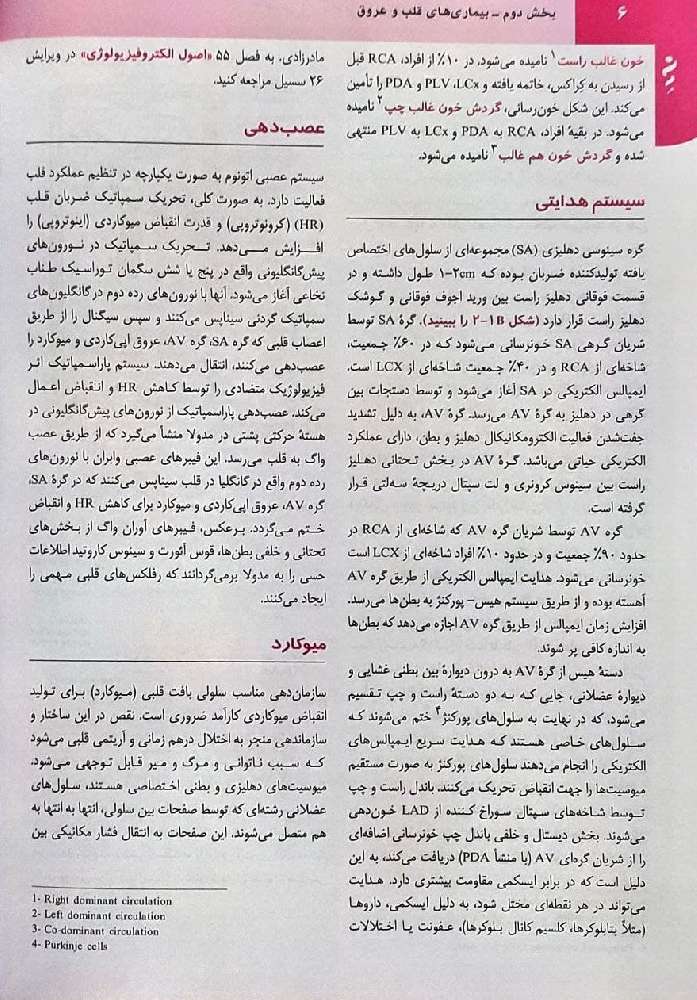 ۶
بخش دوم ـ بیماری‌های قلب و عروق
خون غالب راست۱ نامیده می‌شود. در ۱۰٪ از افراد، RCA قبل
از رسیدن به کراکس، خاتمه یافته و PLV ،LCx و PDA را تأمین
می‌کند. این شکل خون‌رسانی، گردش خون غالب چپ۲ نامیده
می‌شود. در بقیهٔ افراد، RCA به PDA و LCx به PLV منتهی
شده و گردش خون هم غالب۳ نامیده می‌شود.
سیستم هدایتی
گره سینوسی دهلیزی (SA) مجموعه‌ای از سلول‌های اختصاص
یافته تولیدکننده ضربان بوده که ۱-۲cm طول داشته و در
قسمت فوقانی دهلیز راست بین ورید اجوف فوقانی و گوشک
دهلیز راست قرار دارد (شکل ۱B-۲ را ببینید). گرهٔ SA توسط
شریان گرهی SA خونرسانی می‌شود که در ۶۰٪ جمعیت،
شاخه‌ای از RCA و در ۴۰٪ جمعیت شاخه‌ای از LCX است.
ایمپالس الکتریکی در SA آغاز می‌شود و توسط دستجات بین
گرهی در دهلیز به گرهٔ AV می‌رسد. گرهٔ AV، به دلیل تشدید
جفت‌شدن فعالیت الکترومکانیکال دهلیز و بطن، دارای عملکرد
الکتریکی حیاتی می‌باشد. گرهٔ AV در بخش تحتانی دهلیز
راست بین سینوس کرونری و لت سپتال دریچهٔ سه‌لتی قرار
گرفته است.
گره AV توسط شریان گره AV که شاخه‌ای از RCA در
حدود ۹۰٪ جمعیت و در حدود ۱۰٪ افراد شاخه‌ای از LCX است
خونرسانی می‌شود. هدایت ایمپالس الکتریکی از طریق گره AV
آهسته بوده و از طریق سیستم هیس- پورکنژ به بطن‌ها می‌رسد.
افزایش زمان ایمپالس از طریق گره AV اجازه می‌دهد که بطن‌ها
به اندازه کافی پر شوند.
دستهٔ هیس از گرهٔ AV به درون دیوارهٔ بین بطنی غشایی و
دیوارهٔ عضلانی، جایی که به دو دستهٔ راست و چپ تقسیم
می‌شود، که در نهایت به سلول‌های پورکنژ۴ ختم می‌شوند که
سلول‌های خاصی هستند که هدایت سریع ایمپالس‌های
الکتریکی را انجام می‌دهند سلول‌های پورکنژ به صورت مستقیم
میوسیت‌ها را جهت انقباض تحریک می‌کنند. باندل راست و چپ
توسط شاخه‌های سپتال سوراخ کننده از LAD خون‌دهی
می‌شوند. بخش دیستال و خلفی باندل چپ خونرسانی اضافه‌ای
را از شریان گره‌ای AV (با منشأ PDA) دریافت می‌کند، به این
دلیل است که در برابر ایسکمی مقاومت بیشتری دارد. هدایت
می‌تواند در هر نقطه‌ای مختل شود، به دلیل ایسکمی، داروها
(مثلاً بتابلوکرها، کلسیم کانال بلوکرها)، عفونت یا اختلالات
مادرزادی. به فصل ۵۵ «اصول الکتروفیزیولوژی» در ویرایش
۲۶ سسیل مراجعه کنید.
عصب‌دهی
سیستم عصبی اتونوم به صورت یکپارچه در تنظیم عملکرد قلب
فعالیت دارد. به صورت کلی، تحریک سمپاتیک ضربان قلب
(HR) (کرونوتروپی) و قدرت انقباض میوکاردی (اینوتروپی) را
افزایش می‌دهد. تحریک سمپاتیک در نورون‌های
پیش‌گانگلیونی واقع در پنج یا شش سگمان توراسیک طناب
نخاعی آغاز می‌شود. آنها با نورون‌های رده دوم در گانگلیون‌های
سمپاتیک گردنی سیناپس می‌کنند و سپس سیگنال را از طریق
اعصاب قلبی که گره SA، گره AV، عروق اپی‌کاردی و میوکارد را
عصب‌دهی می‌کنند، انتقال می‌دهند. سیستم پاراسمپاتیک اثر
فیزیولوژیک متضادی را توسط کاهش HR و انقباض اعمال
می‌کند. عصب‌دهی پاراسمپاتیک از نورون‌های پیش‌گانگلیونی در
هستهٔ حرکتی پشتی در مدولا منشأ می‌گیرد که از طریق عصب
واگ به قلب می‌رسد. این فیبرهای عصبی وابران با نورون‌های
رده دوم واقع در گانگلیا در قلب سیناپس می‌کنند که در گرهٔ SA،
گره AV، عروق اپی‌کاردی و میوکارد برای کاهش HR و انقباض
ختم می‌گردد. برعکس، فیبرهای آوران واگ از بخش‌های
تحتانی و خلفی بطن‌ها، قوس آئورت و سینوس کاروتید اطلاعات
حسی را به مدولا برمی‌گردانند که رفلکس‌های قلبی مهمی را
ایجاد می‌کنند.
میوکارد
سازمان‌دهی مناسب سلولی بافت قلبی (میوکارد) برای تولید
انقباض میوکاردی کارآمد ضروری است. نقص در این ساختار و
سازماندهی منجر به اختلال درهم زمانی و آریتمی قلبی می‌شود
که سبب ناتوانی و مرگ و میر قابل توجهی می‌شود.
میوسیت‌های دهلیزی و بطنی اختصاصی هستند، سلول‌های
عضلانی رشته‌ای که توسط صفحات بین سلولی، انتها به انتها به
هم متصل می‌شوند. این صفحات به انتقال فشار مکانیکی بین
1- Right dominant circulation
2- Left dominant circulation
3- Co-dominant circulation
4- Purkinje cells